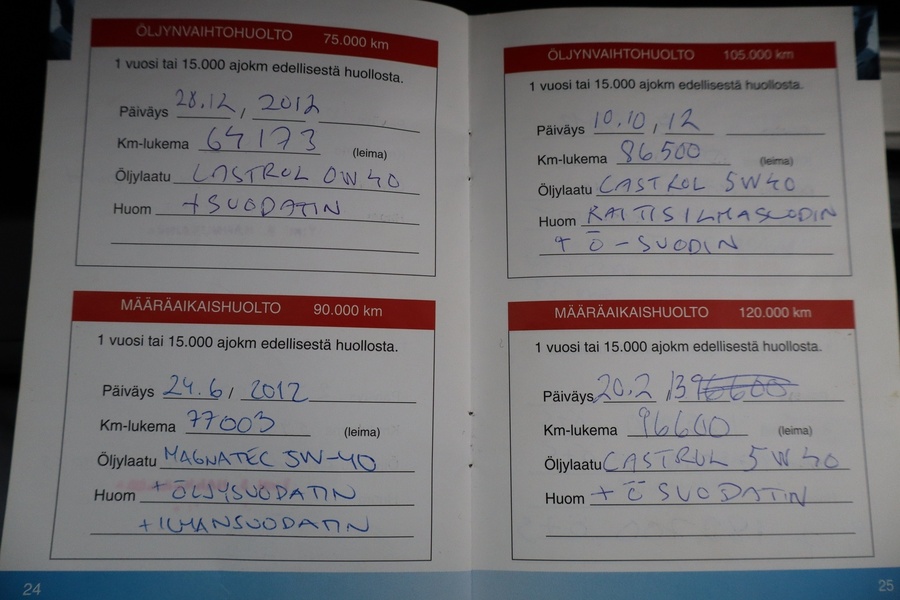 ÖLJYNVAIHTOHUOLTO 75.000 km
1 vuosi tai 15.000 ajokm edellisestä huollosta.
Päiväys 28.12, 2012
Km-lukema 64173 (leima)
Öljylaatu CASTROL 0W40
Huom + SUODATIN
MÄÄRÄAIKAISHUOLTO 90.000 km
1 vuosi tai 15.000 ajokm edellisestä huollosta.
Päiväys 24.6 / 2012
Km-lukema 77003 (leima)
Öljylaatu MAGNATEC 5W-40
Huom + ÖLJYSUODATIN
+ ILMANSUODATIN
24
ÖLJYNVAIHTOHUOLTO 105.000 km
1 vuosi tai 15.000 ajokm edellisestä huollosta.
Päiväys 10.10, 12
Km-lukema 86500 (leima)
Öljylaatu CASTROL 5W40
Huom RAITISILMASUODIN
+ Ö-SUODIN
MÄÄRÄAIKAISHUOLTO 120.000 km
1 vuosi tai 15.000 ajokm edellisestä huollosta.
Päiväys 20.2 /13
Km-lukema 96600 (leima)
Öljylaatu CASTROL 5W40
Huom + Ö SUODATIN
25